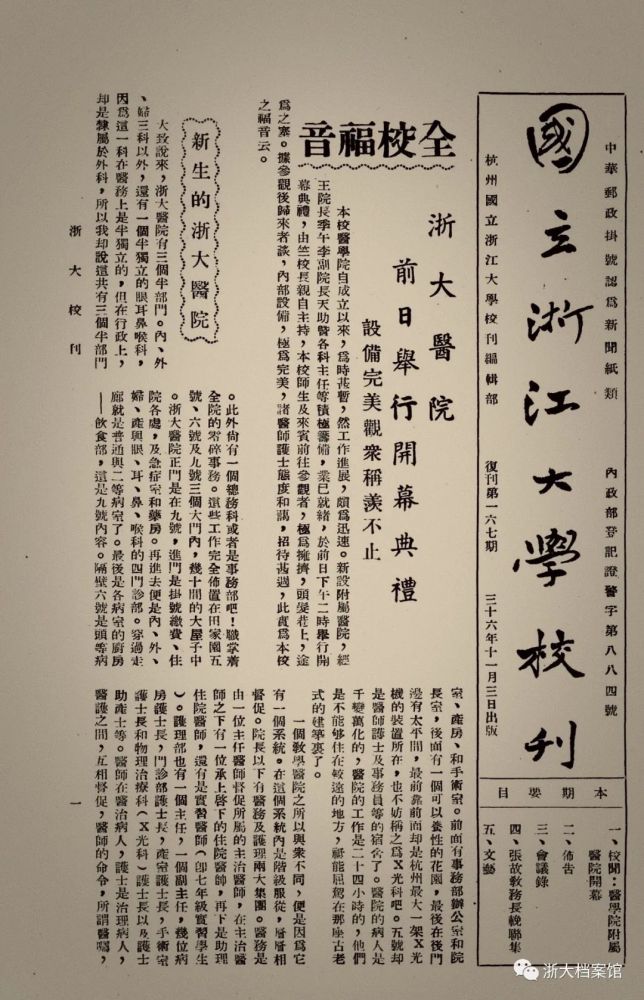 中華郵政掛號認爲新聞紙類
內政部登記證警字第八八四號
國立浙江大學校刊
杭州國立浙江大學校刊編輯部
復刊第一六七期
三十六年十一月三日出版
本期要目
一、校聞：醫學院附屬
醫院開幕
二、佈告
三、會議錄
四、張故敎務長輓聯集
五、文藝
全校福音
浙大醫院
前日舉行開幕典禮
設備完美觀衆稱羨不止
本校醫學院自成立以來，爲時甚暫，然工作進展，頗爲迅速。新設附屬醫院，經
王院長季午李副院長天助曁各科主任等積極籌備，業已就緒，於前日下午二時舉行開
幕典禮，由竺校長親自主持，本校師生及來賓前往參觀者，極爲擁擠，頭髮巷上，途
爲之塞。據參觀後歸來者談，內部設備，極爲完美，諸醫師護士態度和藹，招待甚週，此實爲本校
之福音云。
新生的浙大醫院
大致說來，浙大醫院有三個半部門。內、外
、婦三科以外，還有一個半獨立的眼耳鼻喉科，
因爲這一科在醫務上是半獨立的，但在行政上，
却是隸屬於外科，所以我却說這共有三個半部門
。此外尙有一個總務科或者是事務部吧！職掌着
全院的零碎事務。這些工作完全佈置在田家園五
號、六號及九號三個大門內，幾十間的大屋子中
。浙大醫院正門是在九號，進門是掛號繳費、住
院各處，及急症室和藥房。再進去便是內、外、
婦、產與眼、耳、鼻、喉科的四門診部。穿過走
廊就是普通與二等病室了。最後是各病室的厨房
——飮食部，這是九號內容。隔壁六號是頭等病
室、產房、和手術室。前面有事務部辦公室和院
長室，後面有一個可以養性的花園，最後在後門
邊有太平間，最前靠前面却是杭州最大一架X光
機的裝置所在，也不妨稱之爲X光科吧。五號却
是醫師護士及事務員等的宿舍了。醫院的病人是
千變萬化的，醫院的工作是二十四小時的，他們
是不能够住在較遠的地方，祇能屈駕在那座古老
式的建築裏了。
一個敎學醫院之所以與衆不同，便是因爲它
有一個系統。在這個系統內是階級服從，層層相
督促。院長以下有醫務及護理兩大集團。醫務是
由一位主任醫師督促所屬的主治醫師，在主治醫
師之下有一位承上啓下的住院醫師，再下是助理
住院醫師，還有是實習醫師（卽七年級實習學生
）。護理部也有一個主任，一個副主任，幾位病
房護士長，門診部護士長，產室護士長，手術室
護士長和物理治療科（X光科）護士長以及護士
助產士等。醫師在醫治病人，護士是治理病人，
醫護之間，互相督促，醫師的命令，所謂醫囑，
浙大校刊
一
浙大档案馆